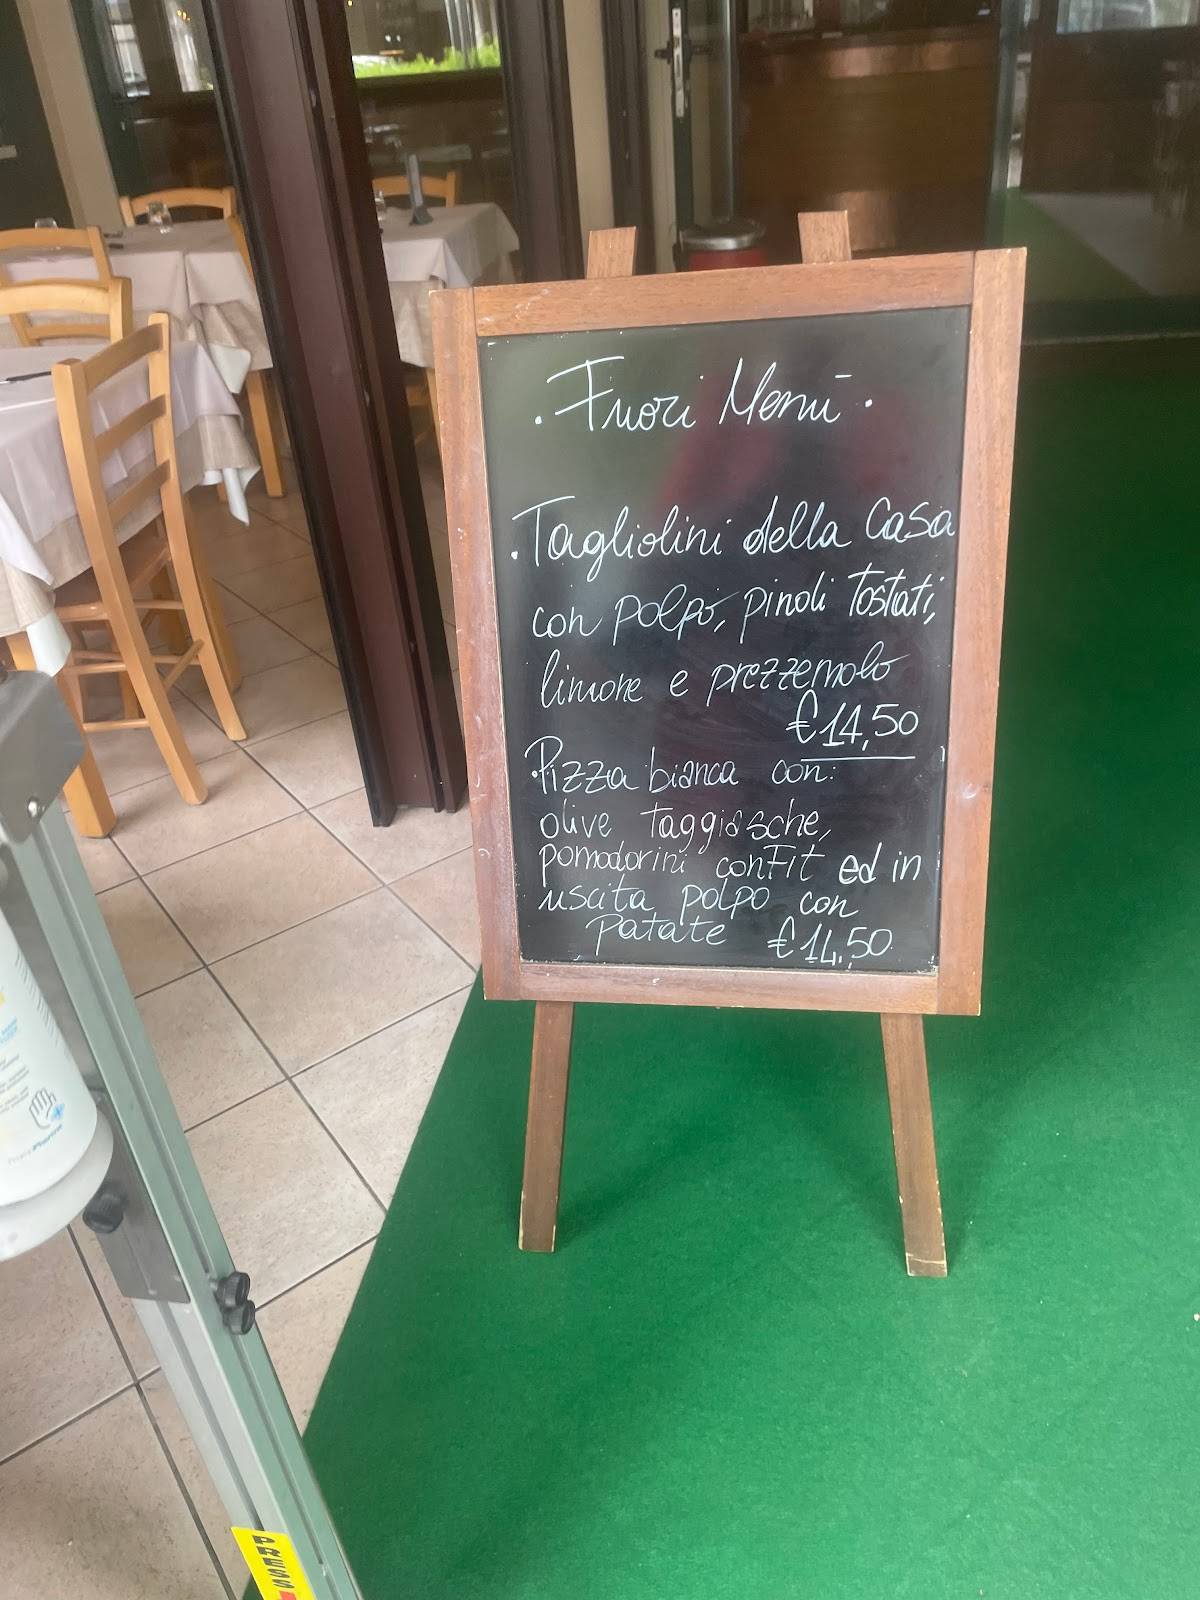 · Fuori Menù ·
· Tagliolini della Casa
con polpo, pinoli tostati,
limone e prezzemolo
€ 14,50
· Pizza bianca con:
olive taggiasche,
pomodorini confit ed in
uscita polpo con
patate € 14,50
PRESS